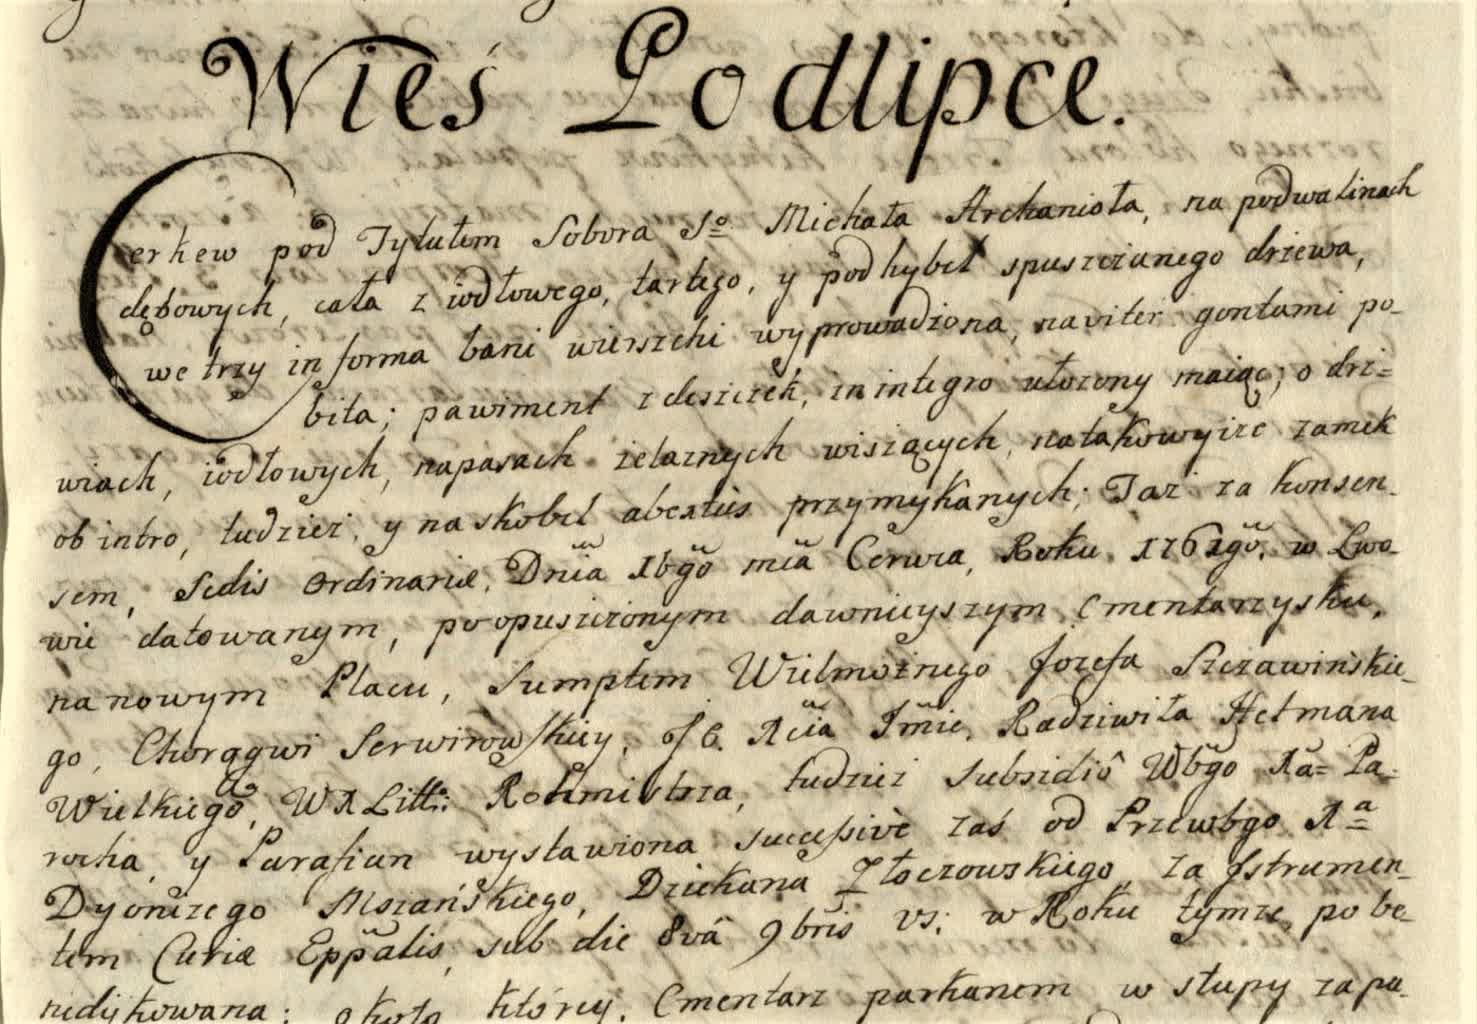 Wieś Podlipce.
Cerkew pod Tytułem Sobora So Michała Archanioła, na podwalinach
dębowych, cała z iodłowego, tartego, y pod hybel spuszczanego drzewa,
we trzy in forma bani wierszchi wyprowadzona, naviter gontami po-
bita; pawiment z deszczek, in integro ułożony maiąc; o drz=
wiach, iodłowych, napasach żelaznych wiszących, natakowyiże zamek
ob intro, tudzież, y na skobel abextus przymykanych; Taż za konsen-
sem, Sedis Ordinariæ, Dnia 16go mca Cerwca, Roku 1761go. w Lwo-
wie datowanym, po opuszczonym dawnieyszym Cmentarzysku,
na nowym Placu, Sumptem Wielmożnego Jozefa Szczawińskie-
go, Chorągwi Serwirowskiey, Radziwiła Hetmana
Wielkiego, WX Litto: Rotmistrza, tudzież Subsidio Wbgo Xa= Pa-
rocha, y Parafian wystawiona successive zaś od Przewbgo Xa=
Dyonizego Mszańskiego, Dziekana Złoczowskiego, za Jstrumen-
tem Curiæ Eppalis, sub die 8va 9bris vs: w Roku tymże, pobe-
nedykowana; okoto którey, Cmentarz parkanem w słupy zapu-